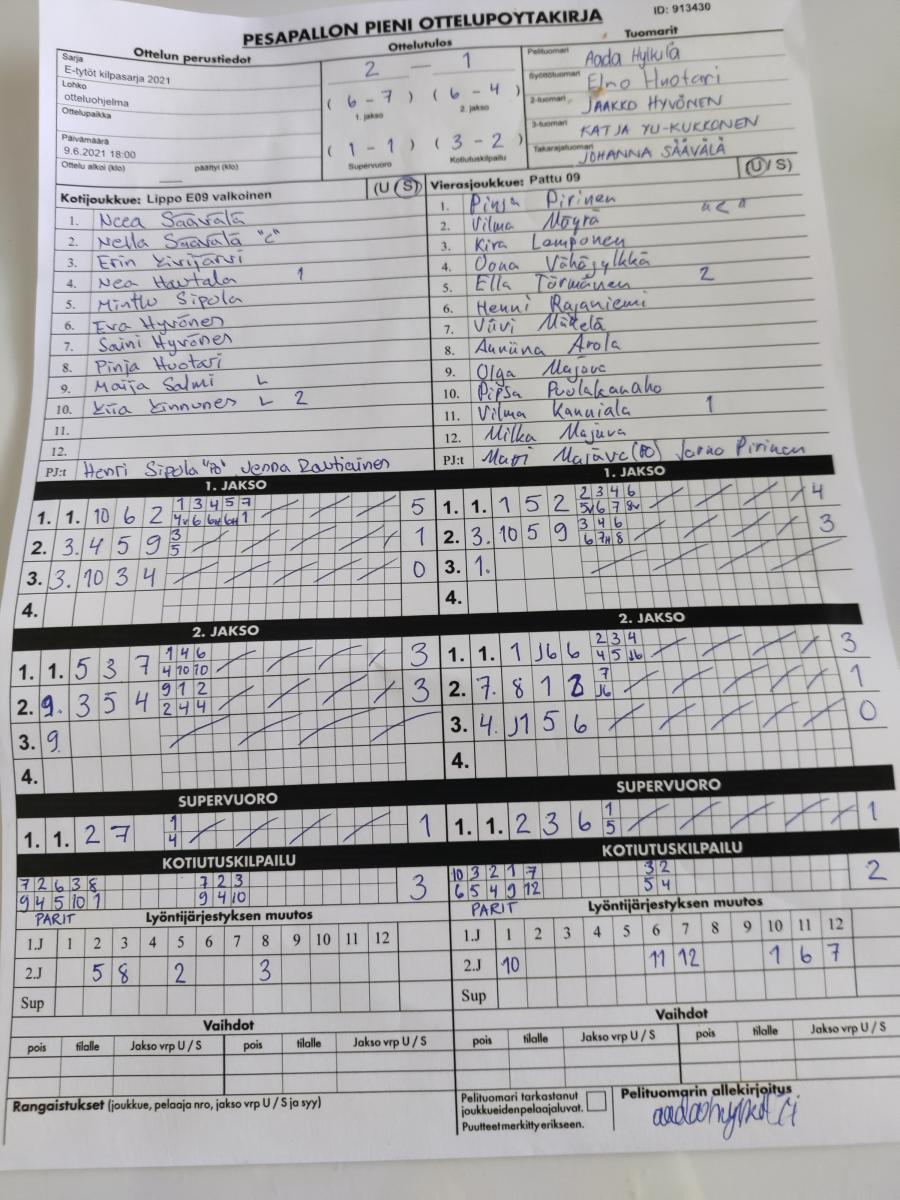 PESAPALLON PIENI OTTELUPOYTAKIRJA
ID: 913430
Ottelun perustiedot
Sarja
E-tytöt kilpasarja 2021
Lohko
otteluohjelma
Ottelupaikka
Päivämäärä
9.6.2021 18:00
Ottelu alkoi (klo) päättyi (klo)
Ottelutulos
2 — 1
( 6 - 7 ) ( 6 - 4 )
1. jakso 2. jakso
( 1 - 1 ) ( 3 - 2 )
Supervuoro Kotiutuskilpailu
Tuomarit
Pelituomari Aada Hylkilä
Syöttötuomari Eino Huotari
2-tuomari JAAKKO HYVÖNEN
3-tuomari KATJA YU-KUKKONEN
Takarajatuomari JOHANNA SÄÄVÄLÄ
Kotijoukkue: Lippo E09 valkoinen (U / S)
1. Neea Säävälä
2. Nella Säävälä "c"
3. Erin Kivijärvi
4. Nea Hautala 1
5. Minttu Sipola
6. Eva Hyvönen
7. Saini Hyvönen
8. Pinja Huotari
9. Maija Salmi L
10. Kiia Kinnunen L 2
11.
12.
PJ:t Henri Sipola "PJ" Jenna Rautiainen
Vierasjoukkue: Pattu 09 (U / S)
1. Pinja Pirinen
2. Vilma Möyrä "c"
3. Kira Lamponen
4. Oona Vähäjylkkä
5. Ella Törmänen 2
6. Henni Rajaniemi
7. Viivi Mäkelä
8. Anniina Arola
9. Olga Majava
10. Pipsa Puolakanaho
11. Vilma Kanniala 1
12. Milka Majava
PJ:t Mari Majava (PJ) Jarno Pirinen
1. JAKSO
1. 1. 10 6 2 1 3 4 5 7 5
4v 6 6H 6H 1
2. 3. 4 5 9 3 1
5
3. 3. 10 3 4 0
4.
1. JAKSO
1. 1. 1 5 2 2 3 4 6 4
5v 6 7 8v
2. 3. 10 5 9 3 4 6 3
6 7H 8
3. 1.
4.
2. JAKSO
1. 1. 5 3 7 1 4 6 3
4 10 10
2. 9. 3 5 4 9 1 2 3
2 4 4
3. 9.
4.
2. JAKSO
1. 1. 1 J6 6 2 3 4 3
4 5 J6
2. 7. 8 1 2 7 1
J6
3. 4. J1 5 6 0
4.
SUPERVUORO
1. 1. 2 7 1 1
4
SUPERVUORO
1. 1. 2 3 6 1 1
5
KOTIUTUSKILPAILU
7 2 6 3 8 7 2 3 3
9 4 5 10 1 9 4 10
KOTIUTUSKILPAILU
10 3 2 1 7 3 2 2
6 5 4 9 12 5 4
PARIT Lyöntijärjestyksen muutos
1.J 1 2 3 4 5 6 7 8 9 10 11 12
2.J 5 8 2 3
Sup
PARIT Lyöntijärjestyksen muutos
1.J 1 2 3 4 5 6 7 8 9 10 11 12
2.J 10 11 12 1 6 7
Sup
Vaihdot
pois tilalle Jakso vrp U / S pois tilalle Jakso vrp U / S
Vaihdot
pois tilalle Jakso vrp U / S pois tilalle Jakso vrp U / S
Rangaistukset (joukkue, pelaaja nro, jakso vrp U / S ja syy)
Pelituomari tarkastanut
joukkueidenpelaajaluvat.
Puutteet merkitty erikseen.
Pelituomarin allekirjoitus